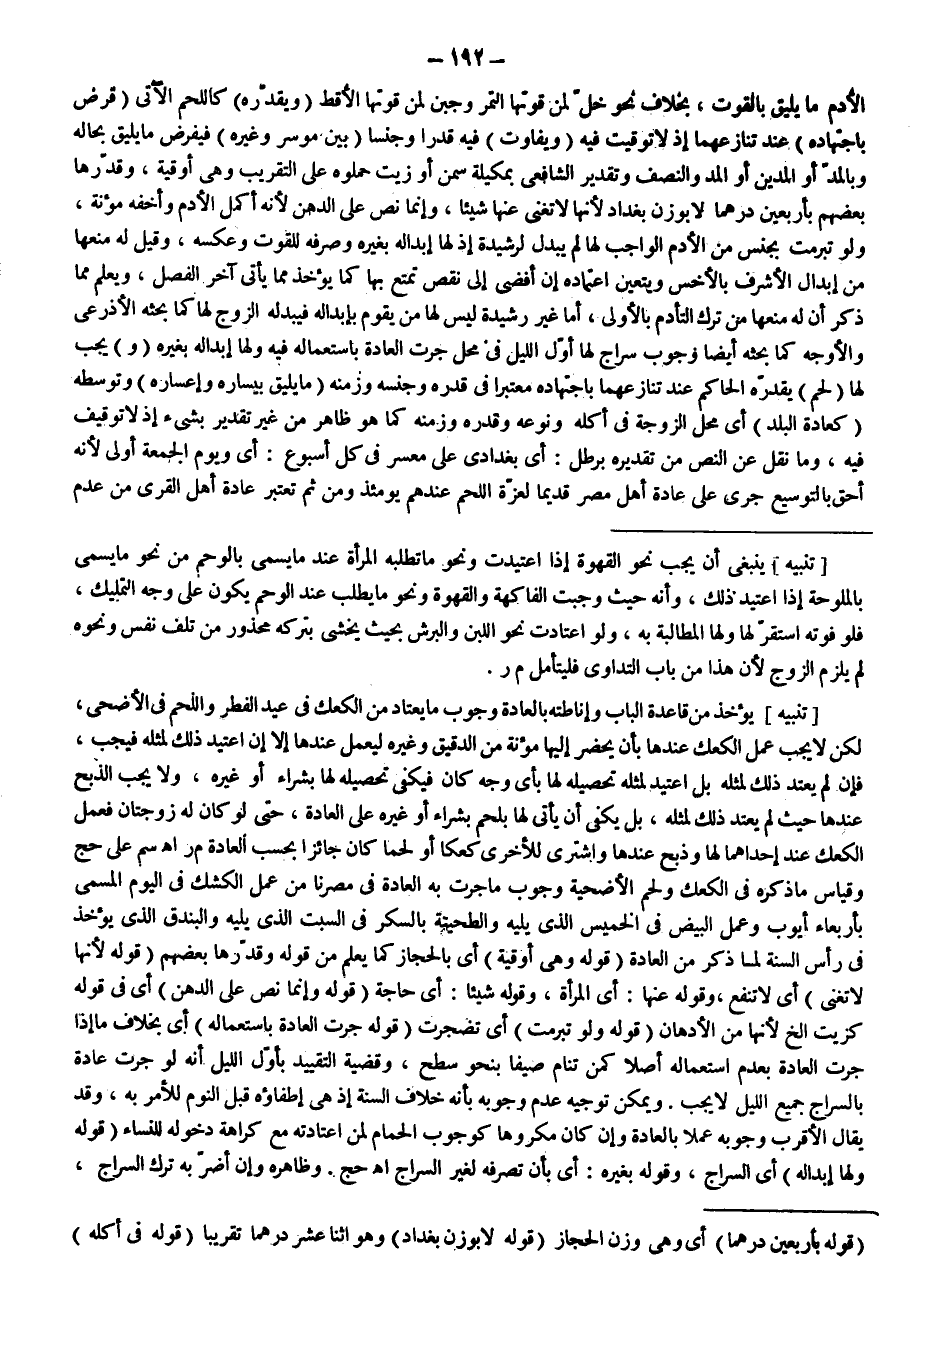 – ١٩٢ –
الأدم ما يليق بالقوت ، بخلاف نحو خلّ لمن قوتها التمر وجبن لمن قوتها الأقط ( ويقدّره) كاللحم الآتى ( قرض
باجتهاده ) عند تنازعهما إذ لاتوقيت فيه ( ويفاوت ) فيه قدرا وجنسا ( بين موسر وغيره ) فيفرض مايليق بحاله
وبالمدّ أو المدين أو المد والنصف وتقدير الشافعى بمكيلة سمن أو زيت حملوه على التقريب وهى أوقية ، وقدّرها
بعضهم بأربعين درهما لابوزن بغداد لأنها لاتغنى عنها شيئا ، وإنما نص على الدهن لأنه أكمل الأدم وأخفه مؤنة ،
ولو تبرمت بجنس من الأدم الواجب لها لم يبدل لرشيدة إذ لها إبداله بغيره وصرفه للقوت وعكسه ، وقيل له منعها
من إبدال الأشرف بالأخس ويتعين اعتماده إن أفضى إلى نقص تمتع بها كما يؤخذ مما يأتى آخر الفصل ، ويعلم مما
ذكر أن له منعها من ترك التأدم بالأولى ، أما غير رشيدة ليس لها من يقوم بإبداله فيبدله الزوج لها كما بحثه الأذرعى
والأوجه كما بحثه أيضا وجوب سراج لها أوّل الليل فى محل جرت العادة باستعماله فيه ولها إبداله بغيره ( و ) يجب
لها ( لحم ) يقدرّه الحاكم عند تنازعهما باجتهاده معتبرا فى قدره وجنسه وزمنه ( مايليق بيساره وإعساره ) وتوسطه
( كعادة البلد ) أى محل الزوجة فى أكله ونوعه وقدره وزمنه كما هو ظاهر من غير تقدير بشىء إذ لاتوقيف
فيه ، وما نقل عن النص من تقديره برطل : أى بغدادى على معسر فى كل أسبوع : أى ويوم الجمعة أولى لأنه
أحق بالتوسيع جرى على عادة أهل مصر قديما لعزّة اللحم عندهم يومئذ ومن ثم تعتبر عادة أهل القرى من عدم
[ تنبيه ] ينبغى أن يجب نحو القهوة إذا اعتيدت ونحو ماتطلبه المرأة عند مايسمى بالوحم من نحو مايسمى
بالملوحة إذا اعتيد ذلك ، وأنه حيث وجبت الفاكهة والقهوة ونحو مايطلب عند الوحم يكون على وجه التمليك ،
فلو فوته استقرّ لها ولها المطالبة به ، ولو اعتادت نحو اللبن والبرش بحيث يخشى بتركه محذور من تلف نفس ونحوه
لم يلزم الزوج لأن هذا من باب التداوى فليتأمل م ر .
[ تنبيه ] يؤخذ من قاعدة الباب وإناطته بالعادة وجوب مايعتاد من الكعك فى عيد الفطر واللحم فى الأضحى ،
لكن لايجب عمل الكعك عندها بأن يحضر إليها مؤنة من الدقيق وغيره ليعمل عندها إلا إن اعتيد ذلك لمثله فيجب ،
فإن لم يعتد ذلك لمثله بل اعتيد لمثله تحصيله لها بأى وجه كان فيكفى تحصيله لها بشراء أو غيره ، ولا يجب الذبح
عندها حيث لم يعتد ذلك لمثله ، بل يكفى أن يأتى لها بلحم بشراء أو غيره على العادة ، حتى لو كان له زوجتان فعمل
الكعك عند إحداهما لها وذبح عندها واشترى للأخرى كعكا أو لحما كان جائزا بحسب العادة م ر اه سم على حج
وقياس ماذكره فى الكعك ولحم الأضحية وجوب ماجرت به العادة فى مصرنا من عمل الكشك فى اليوم المسمى
بأربعاء أيوب وعمل البيض فى الخميس الذى يليه والطحينة بالسكر فى السبت الذى يليه والبندق الذى يؤخذ
فى رأس السنة لما ذكر من العادة ( قوله وهى أوقية ) أى بالحجاز كما يعلم من قوله وقدّرها بعضهم ( قوله لأنها
لاتغنى ) أى لاتنفع ، وقوله عنها : أى المرأة ، وقوله شيئا : أى حاجة ( قوله وإنما نص على الدهن ) أى فى قوله
كزيت الخ لأنها من الأدهان ( قوله ولو تبرمت ) أى تضجرت ( قوله جرت العادة باستعماله ) أى بخلاف ماإذا
جرت العادة بعدم استعماله أصلا كمن تنام صيفا بنحو سطح ، وقضية التقييد بأوّل الليل أنه لو جرت عادة
بالسراج جميع الليل لايجب . ويمكن توجيه عدم وجوبه بأنه خلاف السنة إذ هى إطفاؤه قبل النوم للأمر به ، وقد
يقال الأقرب وجوبه عملا بالعادة وإن كان مكروها كوجوب الحمام لمن اعتادته مع كراهة دخوله للنساء ( قوله
ولها إبداله ) أى السراج ، وقوله بغيره : أى بأن تصرفه لغير السراج اه حج . وظاهره وإن أضرّ به ترك السراج ،
(قوله بأربعين درهما) أى وهى وزن الحجاز (قوله لابوزن بغداد) وهو اثنا عشر درهما تقريبا (قوله فى أكله )